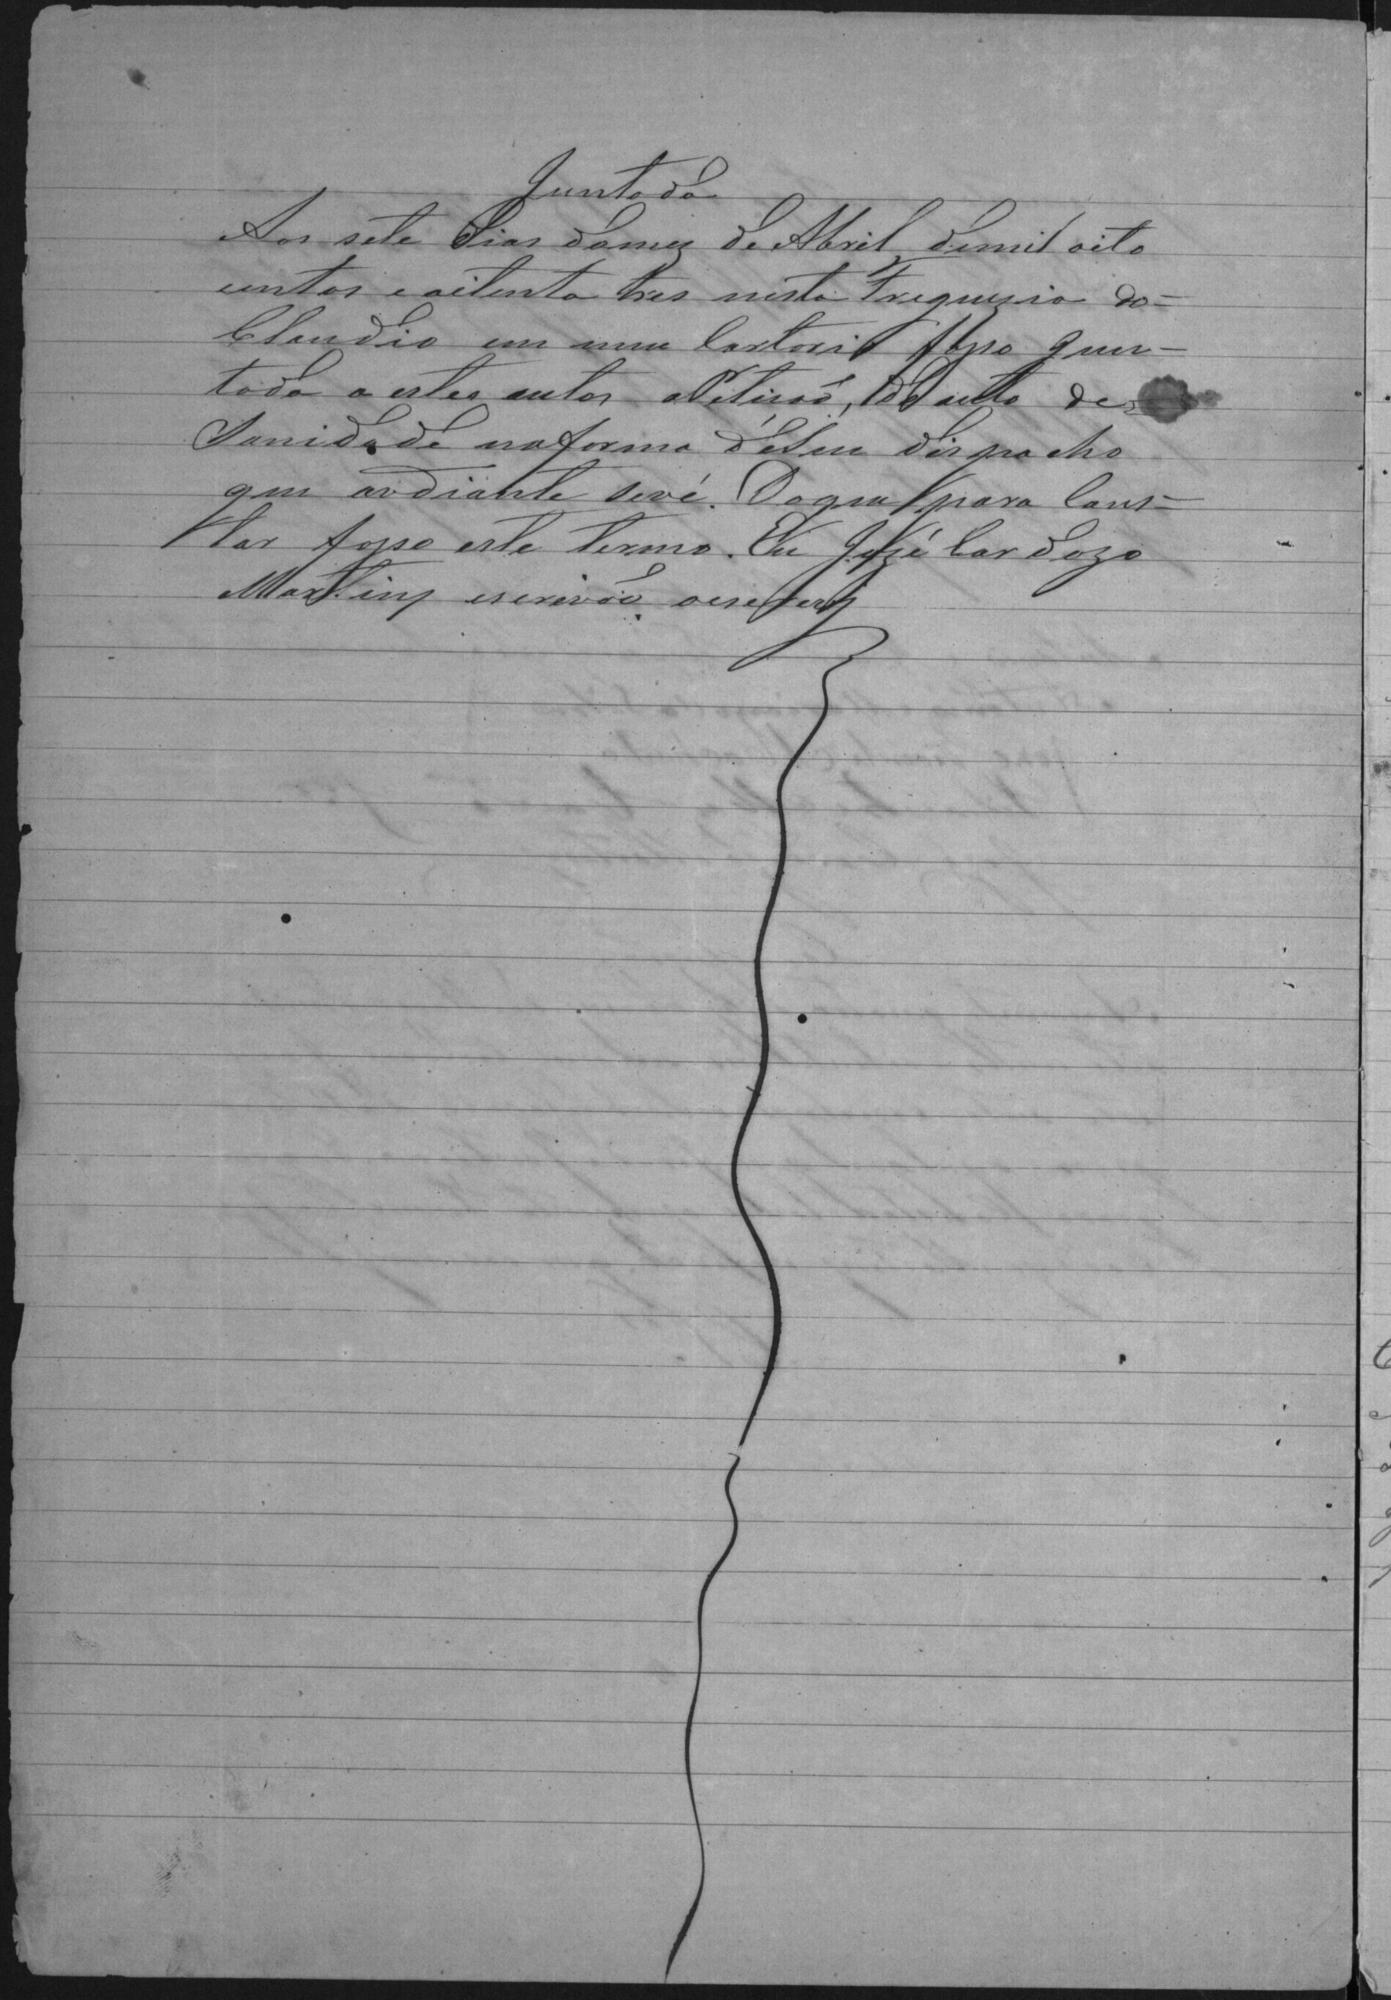 Juntada
Aos sete dias domez de Abril demil oito
centos e oitenta tres nesta Freguezia do=
Claudio em meu Cartorio faço jun=
tada a estes autos a Petição, de auto de
Sanidade na forma deseu despacho
que ardiante sevé. Do que para Cons=
tar faço este termo. Eu José Cardozo
Martins escrivão oescrevy